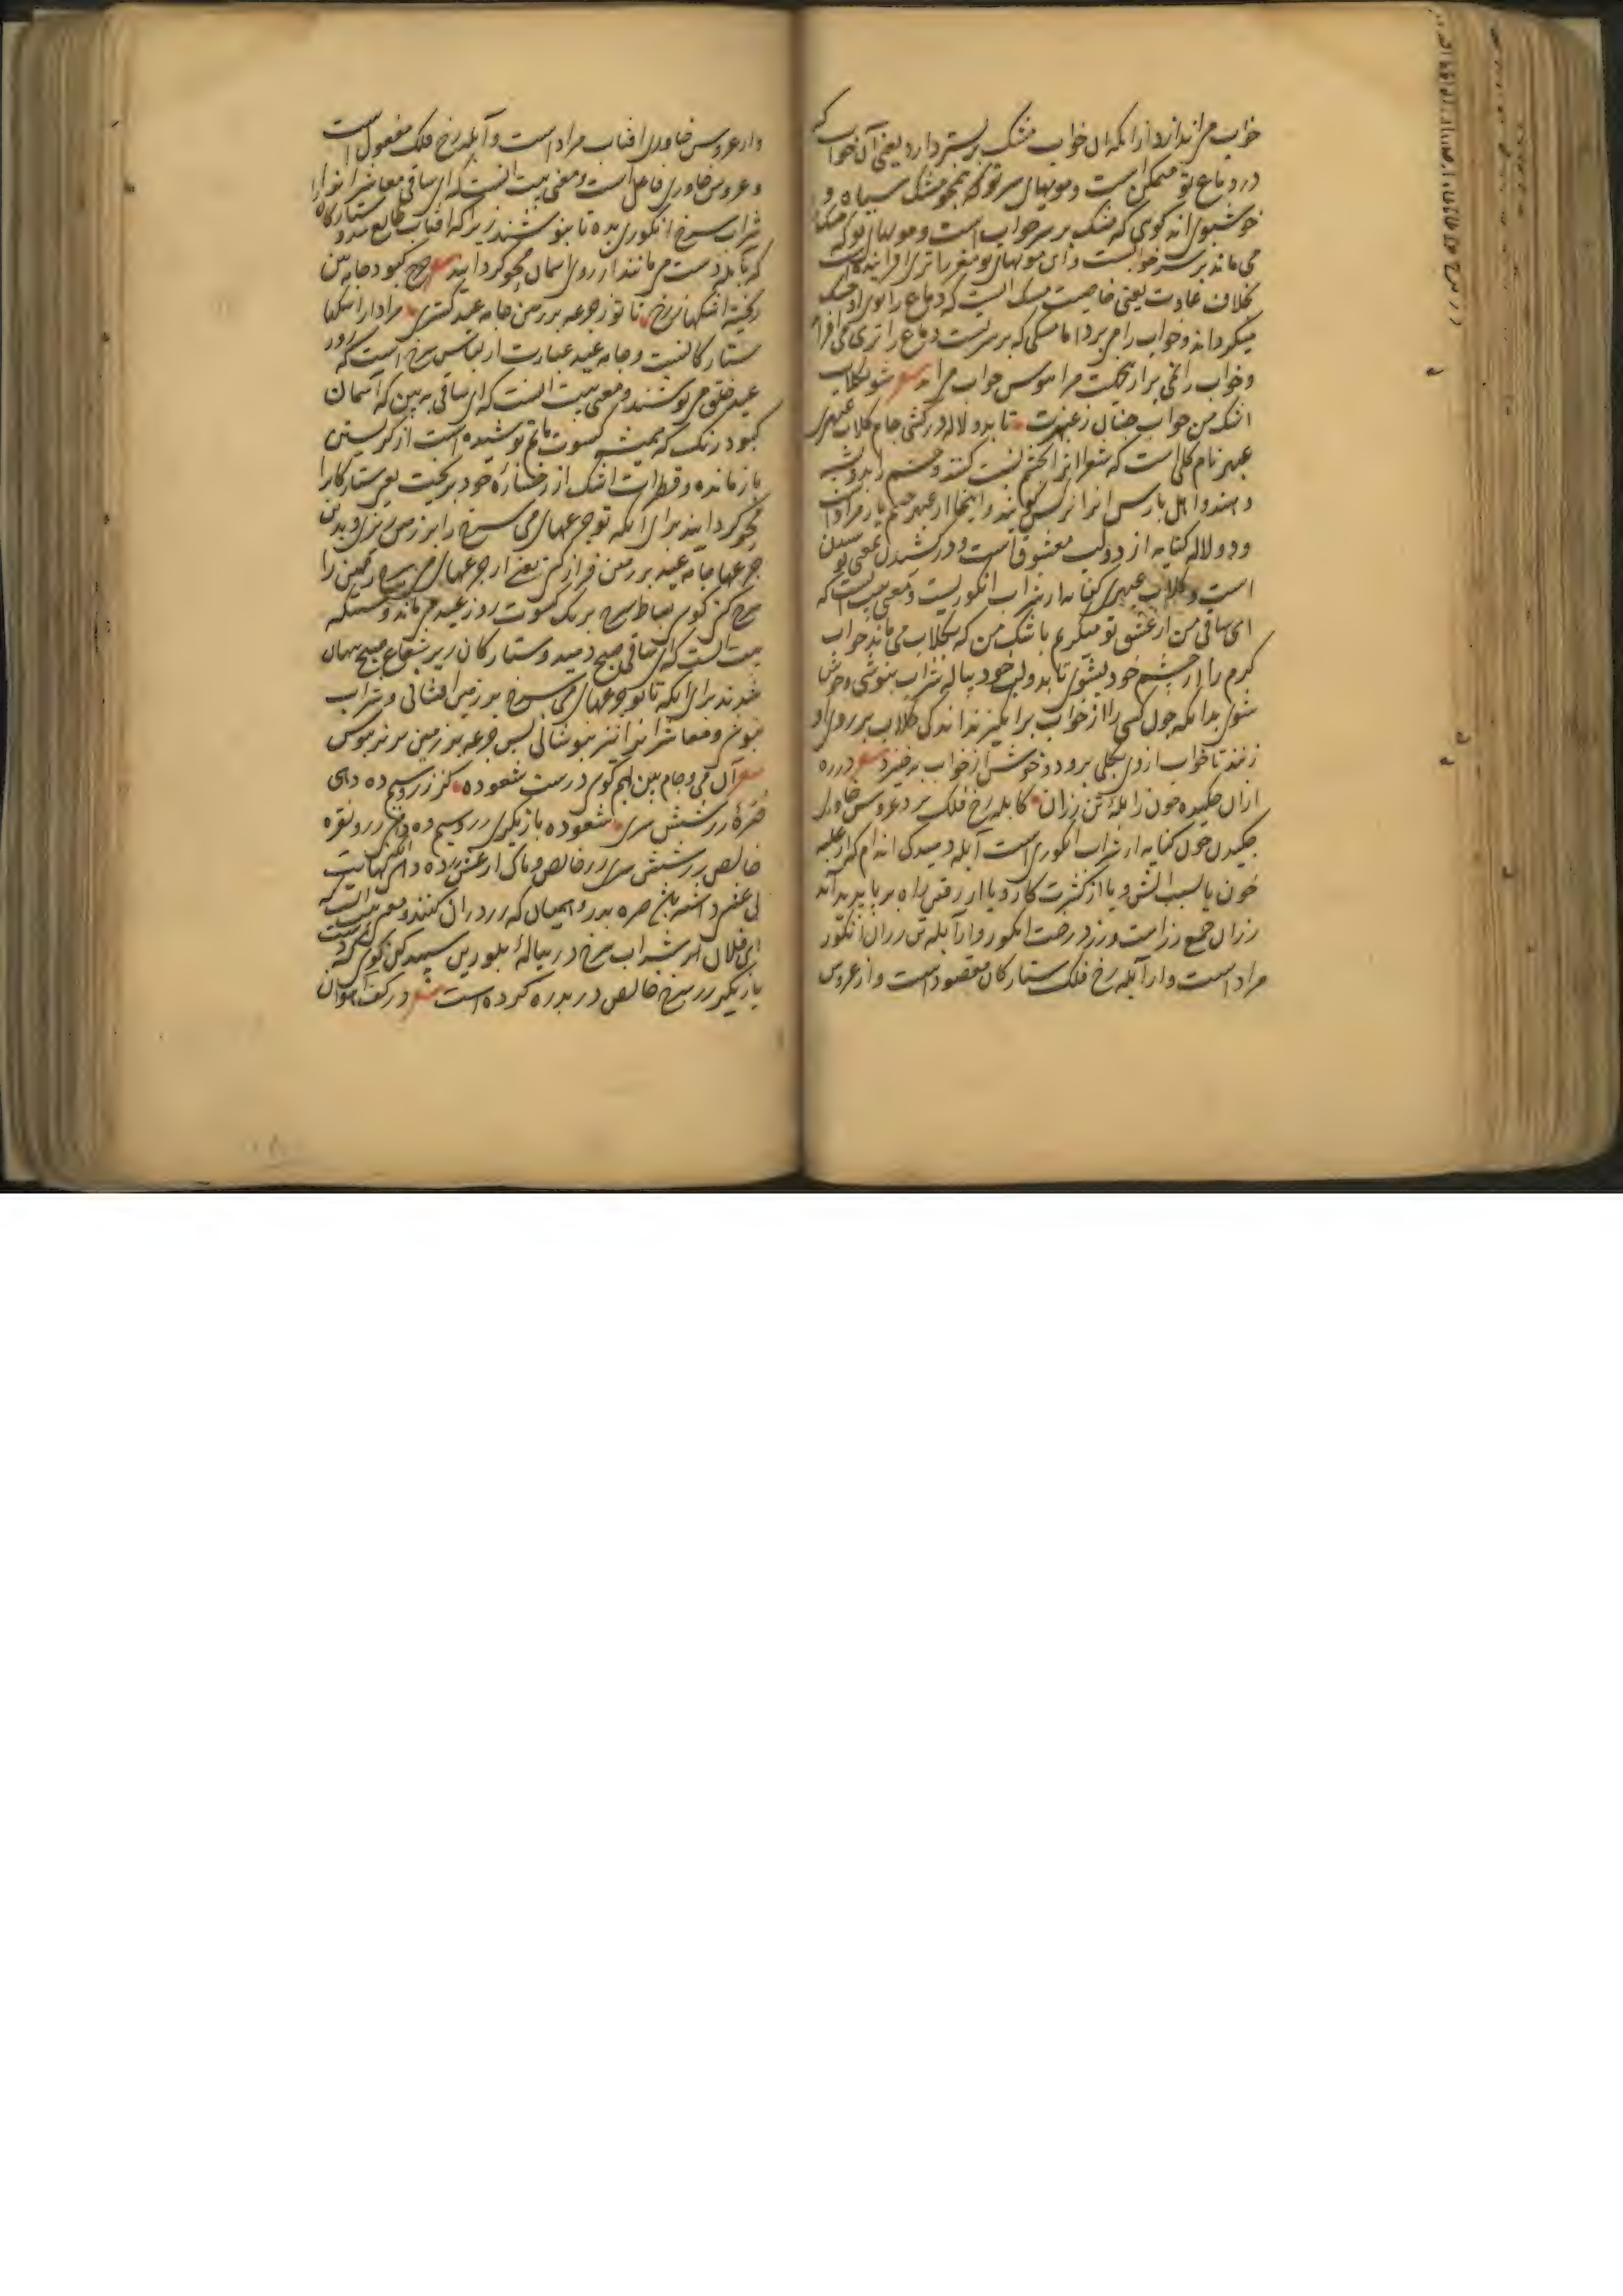 خواب می اندازد ازانکه آن خواب مشک بر بستر دارد یعنی آن خواب که
در دماغ تو متمکن است و مویهای سر تو که همچو مشک سیاه و
خوشبوی اند کوی که مشک بر سر خوابست و مویهای تو که مشک
می ماند بر سر خوابست و آن مویهای تو مغز را تری افزاینده است
بخلاف عادت یعنی خاصیت مشک انیست که دماغ را بوی او خشک
میکرداند و خواب را می برد اما مشکی که بر سر تست دماغ را تری می افزاید
و خواب را نمی برد ازینجهت مرا هوس خواب مرا شعر شو بکلاب
اشک من خواب جهان ز عبهرت تا بدو لاله در کشی جام کلاب عبهری
عبهر نام کلی است که شعرا انرا بچشم نسبت کنند و چشم را بدو تشبیه
دهند و اهل پارس انرا نرکس کویند و اینجا از عبهر چشم یار مراد است
و دو لاله کنایه از دو لب معشوق است و در کشیدن بمعنی نوشیدن
است و کلاب عبهری کنایه از شراب انکوریست و معنی بیت انست که
ای ساقی من از عشق تو میکریم باشک من که بکلاب می ماند خواب
کرم را از چشم خود بشوی تا بدو لب خود پیاله شراب بنوشی و خوش
شوی بدانکه چون کسی را از خواب برانکیزند اندکی کلاب بر روی او
زنند تا خواب از وی بکلی برود و خوش از خواب برخیزد شعر در ده
ازان چکیده خون ز آبلۀ تن رزان کابله رخ فلک برد عروس خاوری
چکیدن خون کنایه از شراب انکوری است آبله دمیدکی اندام که از غلبه
خون یا بسبب آتش و یا از کثرت کار و یا از رفتن راه بر پا پدید آید
رزان جمع رز است و رز درخت انکور و از آبله تن رزان انکور
مراد است و از آبله رخ فلک ستارکان مقصود است و از عروس
و از عروس خاوری افتاب مراد است و آبله رخ فلک مفعول است
و عروس خاوری فاعل است و معنی بیت انست که ای ساقی معاشرانرا
شراب سرخ انکوری بده تا بنوشند زیرا که افتاب طالع شد و ستارکان
که بآبله دست می مانند از روی اسمان محو کردانید شعر چرخ کبود جامه بین
ریخته اشکها ز رخ تا تو ز جرعه بر زمین جامه عید کستری مراد از اشکها
ستارکانست و جامه عید عبارت از لباس سرخ است که روز
عید خلق می پوشند و معنی بیت انست که ای ساقی به بین که آسمان
کبود رنک که همیشه کسوت ماتم پوشیده است از کریستن
باز مانده و قطرات اشک از رخسارۀ خود بریخت یعنی ستارکانرا
محو کردانید برای آنکه تو جرعهای می سرخ را بر زمین ریزی و بدین
جرعها جامه عید بر زمین فراز کنی یعنی از جرعهای می سرخ زمین را
سرخ کنی کوی بساط سرخ برنک کسوت روز عید می ماند و
بیت انست که ای ساقی صبح دمید و ستارکان زیر شعاع صبح پنهان
شدند برای آنکه تا تو جرعهای می سرخ بر زمین افشانی و شراب
بنوشی و معاشرانرا نیز بنوشانی پس جرعه بر زمین نیز بنوش
شعر آن می و جام بین بهم کوی درست شعوده کز زر و سیم ده دهی
حقۀ زر شش سری شعوده بازیکری زر و سیم ده دهی زر و نقره
خالص زر شش سری زر خالص و پاک از غش
ای فلان این شراب سرخ در پیالۀ بلورین سپید کن کوی که
بازیکر زر سرخ خالص در بدره کرده است شعر در کف آهوان